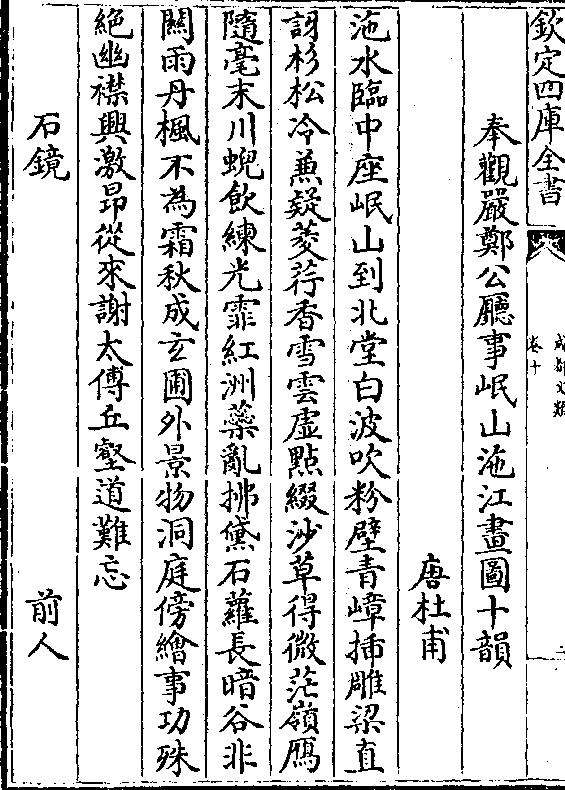 欽定四庫全書
成都文類
卷十
奉觀嚴鄭公廳事岷山沲江畫圖十韻
唐杜甫
沲水臨中座岷山到北堂白波吹粉壁青嶂揷雕梁直
訝杉松冷兼疑菱荇香雪雲虛點綴沙草得微茫嶺鴈
隨毫末川蜺飲練光霏紅洲蘂亂拂黛石蘿長暗谷非
關雨丹楓不為霜秋成玄圃外景物洞庭傍繪事功殊
絕幽襟興激昂從來謝太傅丘壑道難忘
石鏡 前人